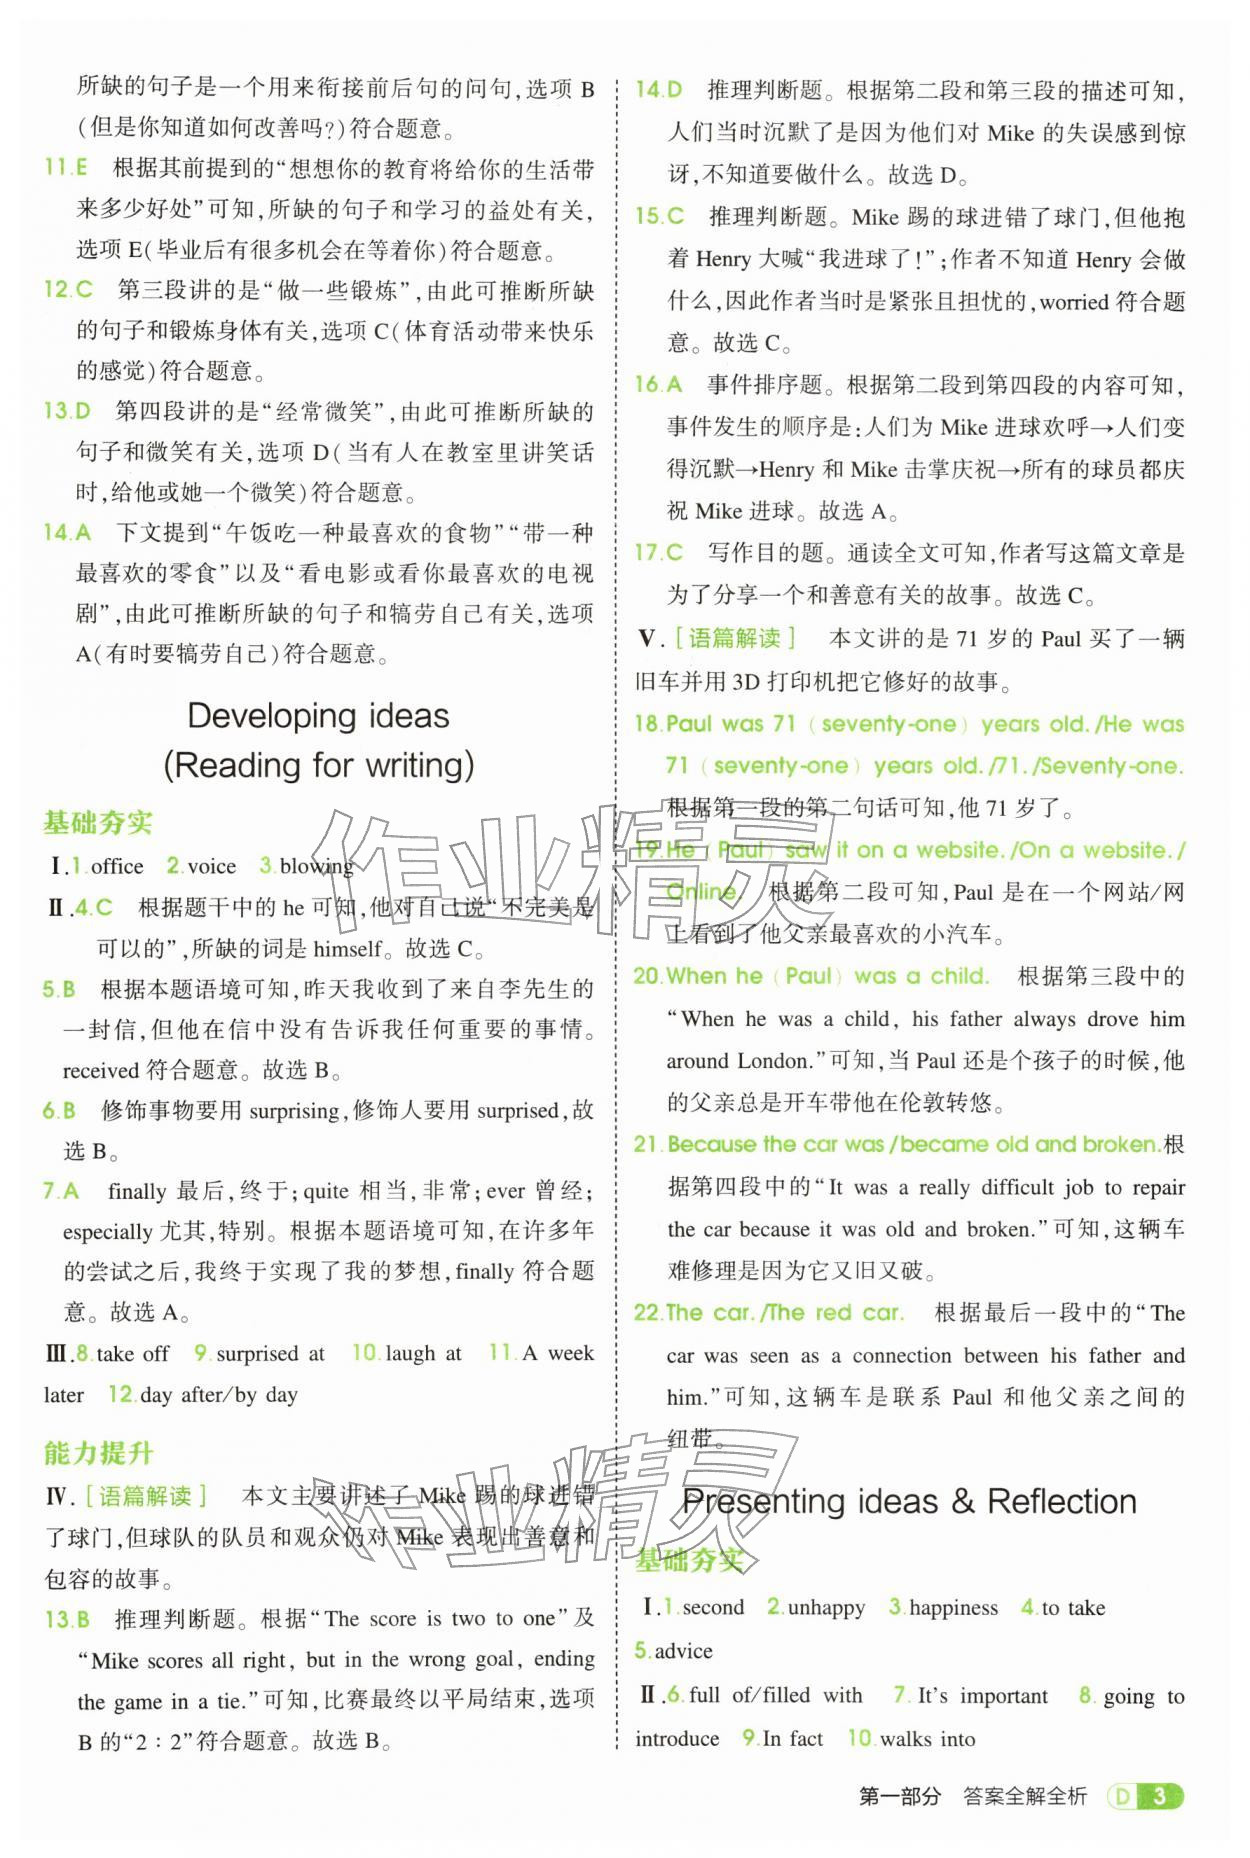 所缺的句子是一个用来衔接前后句的问句,选项 B
(但是你知道如何改善吗?)符合题意。
11.E 根据其前提到的“想想你的教育将给你的生活带
来多少好处”可知,所缺的句子和学习的益处有关,
选项 E(毕业后有很多机会在等着你)符合题意。
12.C 第三段讲的是“做一些锻炼”,由此可推断所缺
的句子和锻炼身体有关,选项 C(体育活动带来快乐
的感觉)符合题意。
13.D 第四段讲的是“经常微笑”,由此可推断所缺的
句子和微笑有关,选项 D(当有人在教室里讲笑话
时,给他或她一个微笑)符合题意。
14.A 下文提到“午饭吃一种最喜欢的食物”“带一种
最喜欢的零食”以及“看电影或看你最喜欢的电视
剧”,由此可推断所缺的句子和犒劳自己有关,选项
A(有时要犒劳自己)符合题意。
Developing ideas
(Reading for writing)
基础夯实
Ⅰ.1.office 2.voice 3.blowing
Ⅱ.4.C 根据题干中的 he 可知,他对自己说“不完美是
可以的”,所缺的词是 himself。故选 C。
5.B 根据本题语境可知,昨天我收到了来自李先生的
一封信,但他在信中没有告诉我任何重要的事情。
received 符合题意。故选 B。
6.B 修饰事物要用 surprising,修饰人要用 surprised,故
选 B。
7.A finally 最后,终于;quite 相当,非常;ever 曾经;
especially 尤其,特别。根据本题语境可知,在许多年
的尝试之后,我终于实现了我的梦想,finally 符合题
意。故选 A。
Ⅲ.8.take off 9.surprised at 10.laugh at 11.A week
later 12.day after/by day
能力提升
Ⅳ.[语篇解读] 本文主要讲述了 Mike 踢的球进错
了球门,但球队的队员和观众仍对 Mike 表现出善意和
包容的故事。
13.B 推理判断题。根据“The score is two to one”及
“Mike scores all right, but in the wrong goal, ending
the game in a tie.”可知,比赛最终以平局结束,选项
B 的“2∶2”符合题意。故选 B。
14.D 推理判断题。根据第二段和第三段的描述可知,
人们当时沉默了是因为他们对 Mike 的失误感到惊
讶,不知道要做什么。故选 D。
15.C 推理判断题。Mike 踢的球进错了球门,但他抱
着 Henry 大喊“我进球了!”;作者不知道 Henry 会做
什么,因此作者当时是紧张且担忧的,worried 符合题
意。故选 C。
16.A 事件排序题。根据第二段到第四段的内容可知,
事件发生的顺序是:人们为 Mike 进球欢呼→人们变
得沉默→Henry 和 Mike 击掌庆祝→所有的球员都庆
祝 Mike 进球。故选 A。
17.C 写作目的题。通读全文可知,作者写这篇文章是
为了分享一个和善意有关的故事。故选 C。
Ⅴ.[语篇解读] 本文讲的是 71 岁的 Paul 买了一辆
旧车并用 3D 打印机把它修好的故事。
18.Paul was 71 (seventy-one) years old./He was
71 (seventy-one) years old./71./Seventy-one.
根据第一段的第二句话可知,他 71 岁了。
19.He (Paul) saw it on a website./On a website./
Online. 根据第二段可知,Paul 是在一个网站/网
上看到了他父亲最喜欢的小汽车。
20.When he (Paul) was a child. 根据第三段中的
“When he was a child, his father always drove him
around London.”可知,当 Paul 还是个孩子的时候,他
的父亲总是开车带他在伦敦转悠。
21.Because the car was/became old and broken.根
据第四段中的“It was a really difficult job to repair
the car because it was old and broken.”可知,这辆车
难修理是因为它又旧又破。
22.The car./The red car. 根据最后一段中的“The
car was seen as a connection between his father and
him.”可知,这辆车是联系 Paul 和他父亲之间的
纽带。
Presenting ideas & Reflection
基础夯实
Ⅰ.1.second 2.unhappy 3.happiness 4.to take
5.advice
Ⅱ.6.full of/filled with 7.It's important 8.going to
introduce 9.In fact 10.walks into
第一部分 答案全解全析 D 3
作业精灵
作业精灵